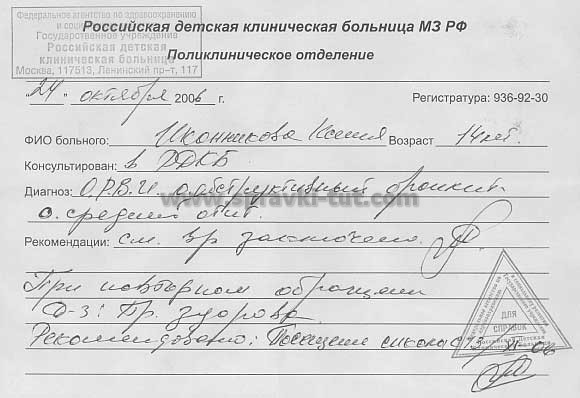 Федеральное агентство по здравоохранению
и социальному
Государственное учреждение
Российская детская
клиническая больница
Москва, 117513, Ленинский пр-т, 117
Российская детская клиническая больница МЗ РФ
Поликлиническое отделение
"24" октября 2006 г.
Регистратура: 936-92-30
ФИО больного: Иконникова Ксения Возраст 14 лет.
Консультирован: в РДКБ
Диагноз: О.Р.В.И. обструктивный бронхит
о. средний отит.
www.spravki-tut.com
Рекомендации: см. вр заключено.
При повторном обращении
Д-з: Пр. здорова
Рекомендовано: Посещение школы с XI-06
ДЛЯ
СПРАВОК
Российская детская
клиническая больница